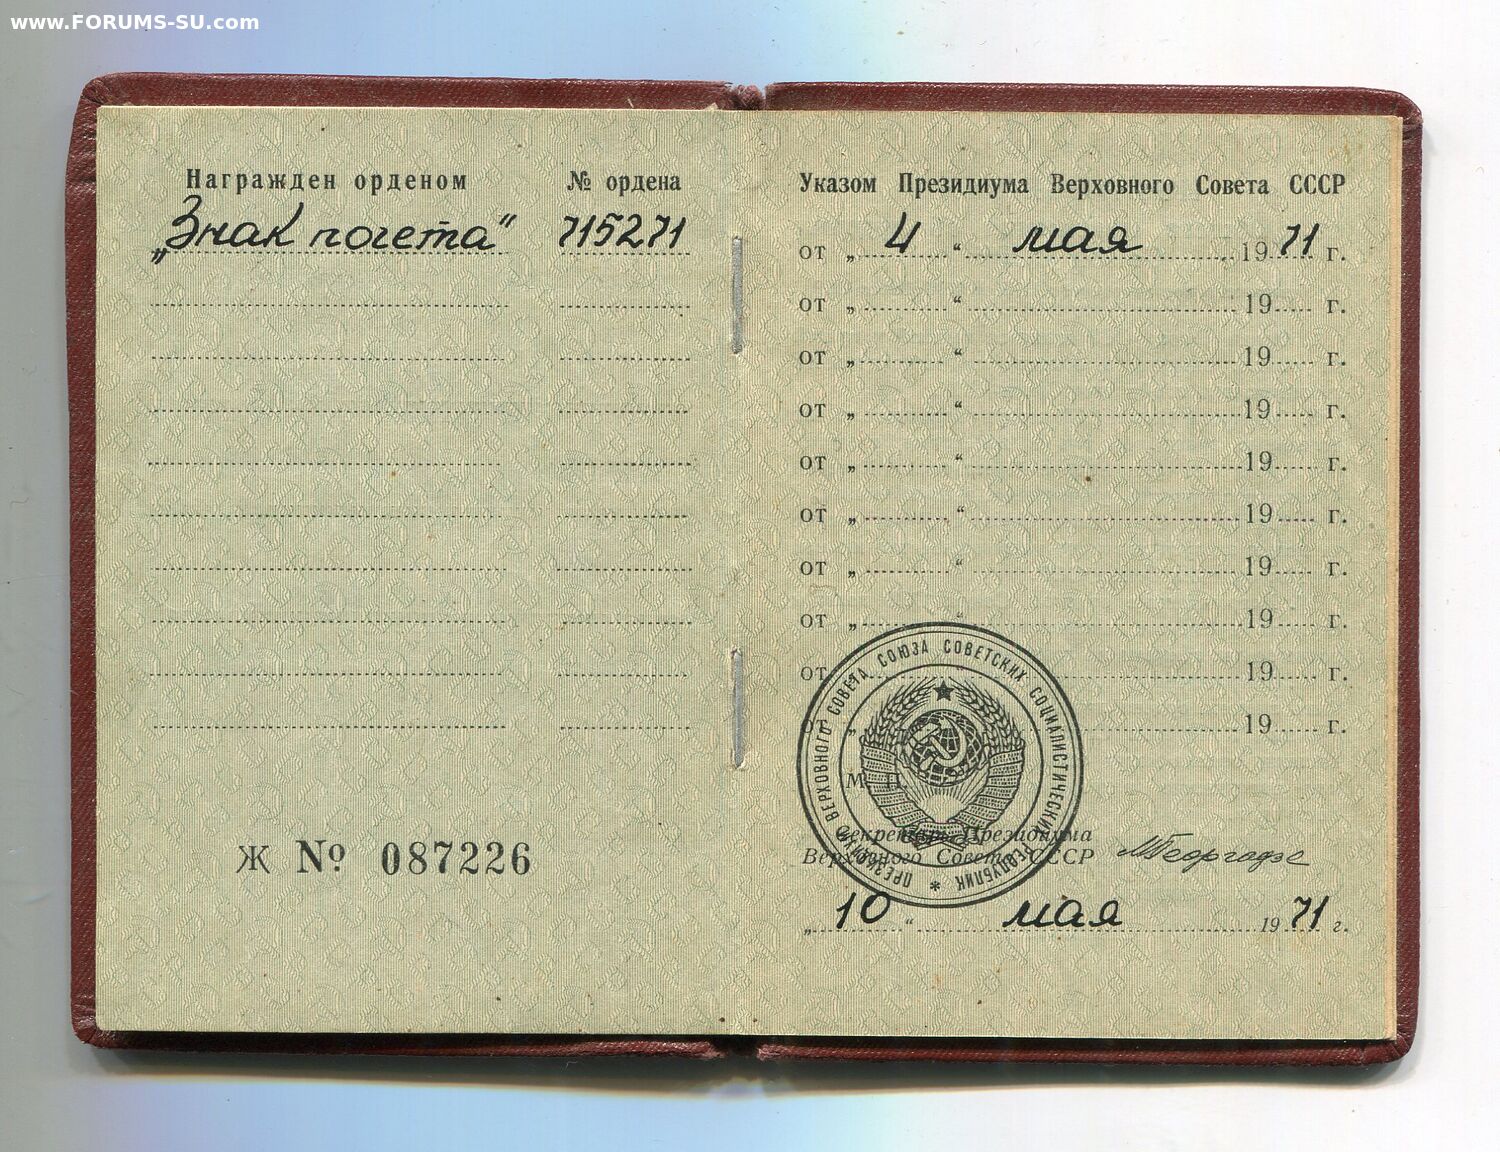 www.FORUMS-SU.com
Награжден орденом № ордена
„Знак почета“ 715271
Ж № 087226
Указом Президиума Верховного Совета СССР
от „ 4 “ мая 1971 г.
от „ “ 19 г.
от „ “ 19 г.
от „ “ 19 г.
от „ “ 19 г.
от „ “ 19 г.
от „ “ 19 г.
от „ “ 19 г.
от „ “ 19 г.
от „ 19 г.
М. П.
ПРЕЗИДИУМ ВЕРХОВНОГО СОВЕТА СОЮЗА СОВЕТСКИХ СОЦИАЛИСТИЧЕСКИХ РЕСПУБЛИК *
Секретарь Президиума
Верховного Совета СССР МГеоргадзе
„ 10 “ мая 1971 г.